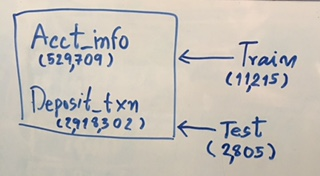 Acct_info
(529,709)
Deposit_txn
(2,918,302)
Train
(11,215)
Test
(2,805)